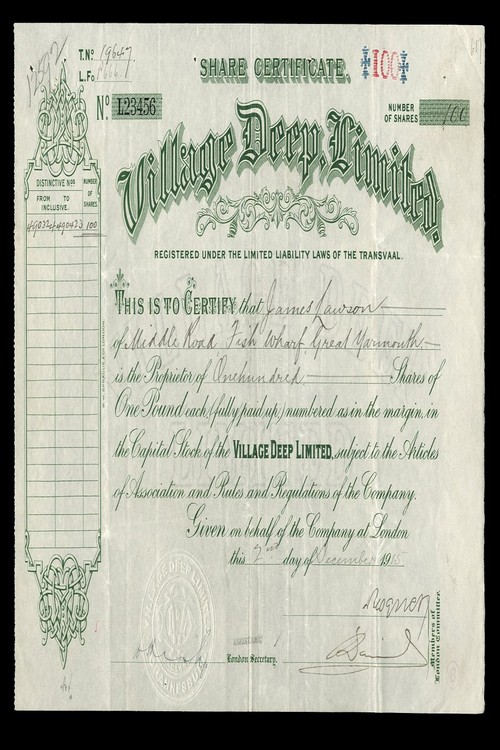 T.Nº 19647
L.Fº
SHARE CERTIFICATE.
100
Nº L23456
NUMBER OF SHARES 100
Village Deep, Limited.
REGISTERED UNDER THE LIMITED LIABILITY LAWS OF THE TRANSVAAL.
DISTINCTIVE Nos NUMBER OF SHARES.
FROM TO INCLUSIVE.
490324 490423 100
THIS IS TO CERTIFY that James Lawson
of Middle Road Fish Wharf Great Yarmouth
is the Proprietor of Onehundred Shares of
One Pound each, (fully paid up,) numbered as in the margin, in
the Capital Stock of the VILLAGE DEEP LIMITED, subject to the Articles
of Association and Rules and Regulations of the Company.
Given on behalf of the Company at London
this 2nd day of December 1915
Members of
London Committee.
London Secretary.